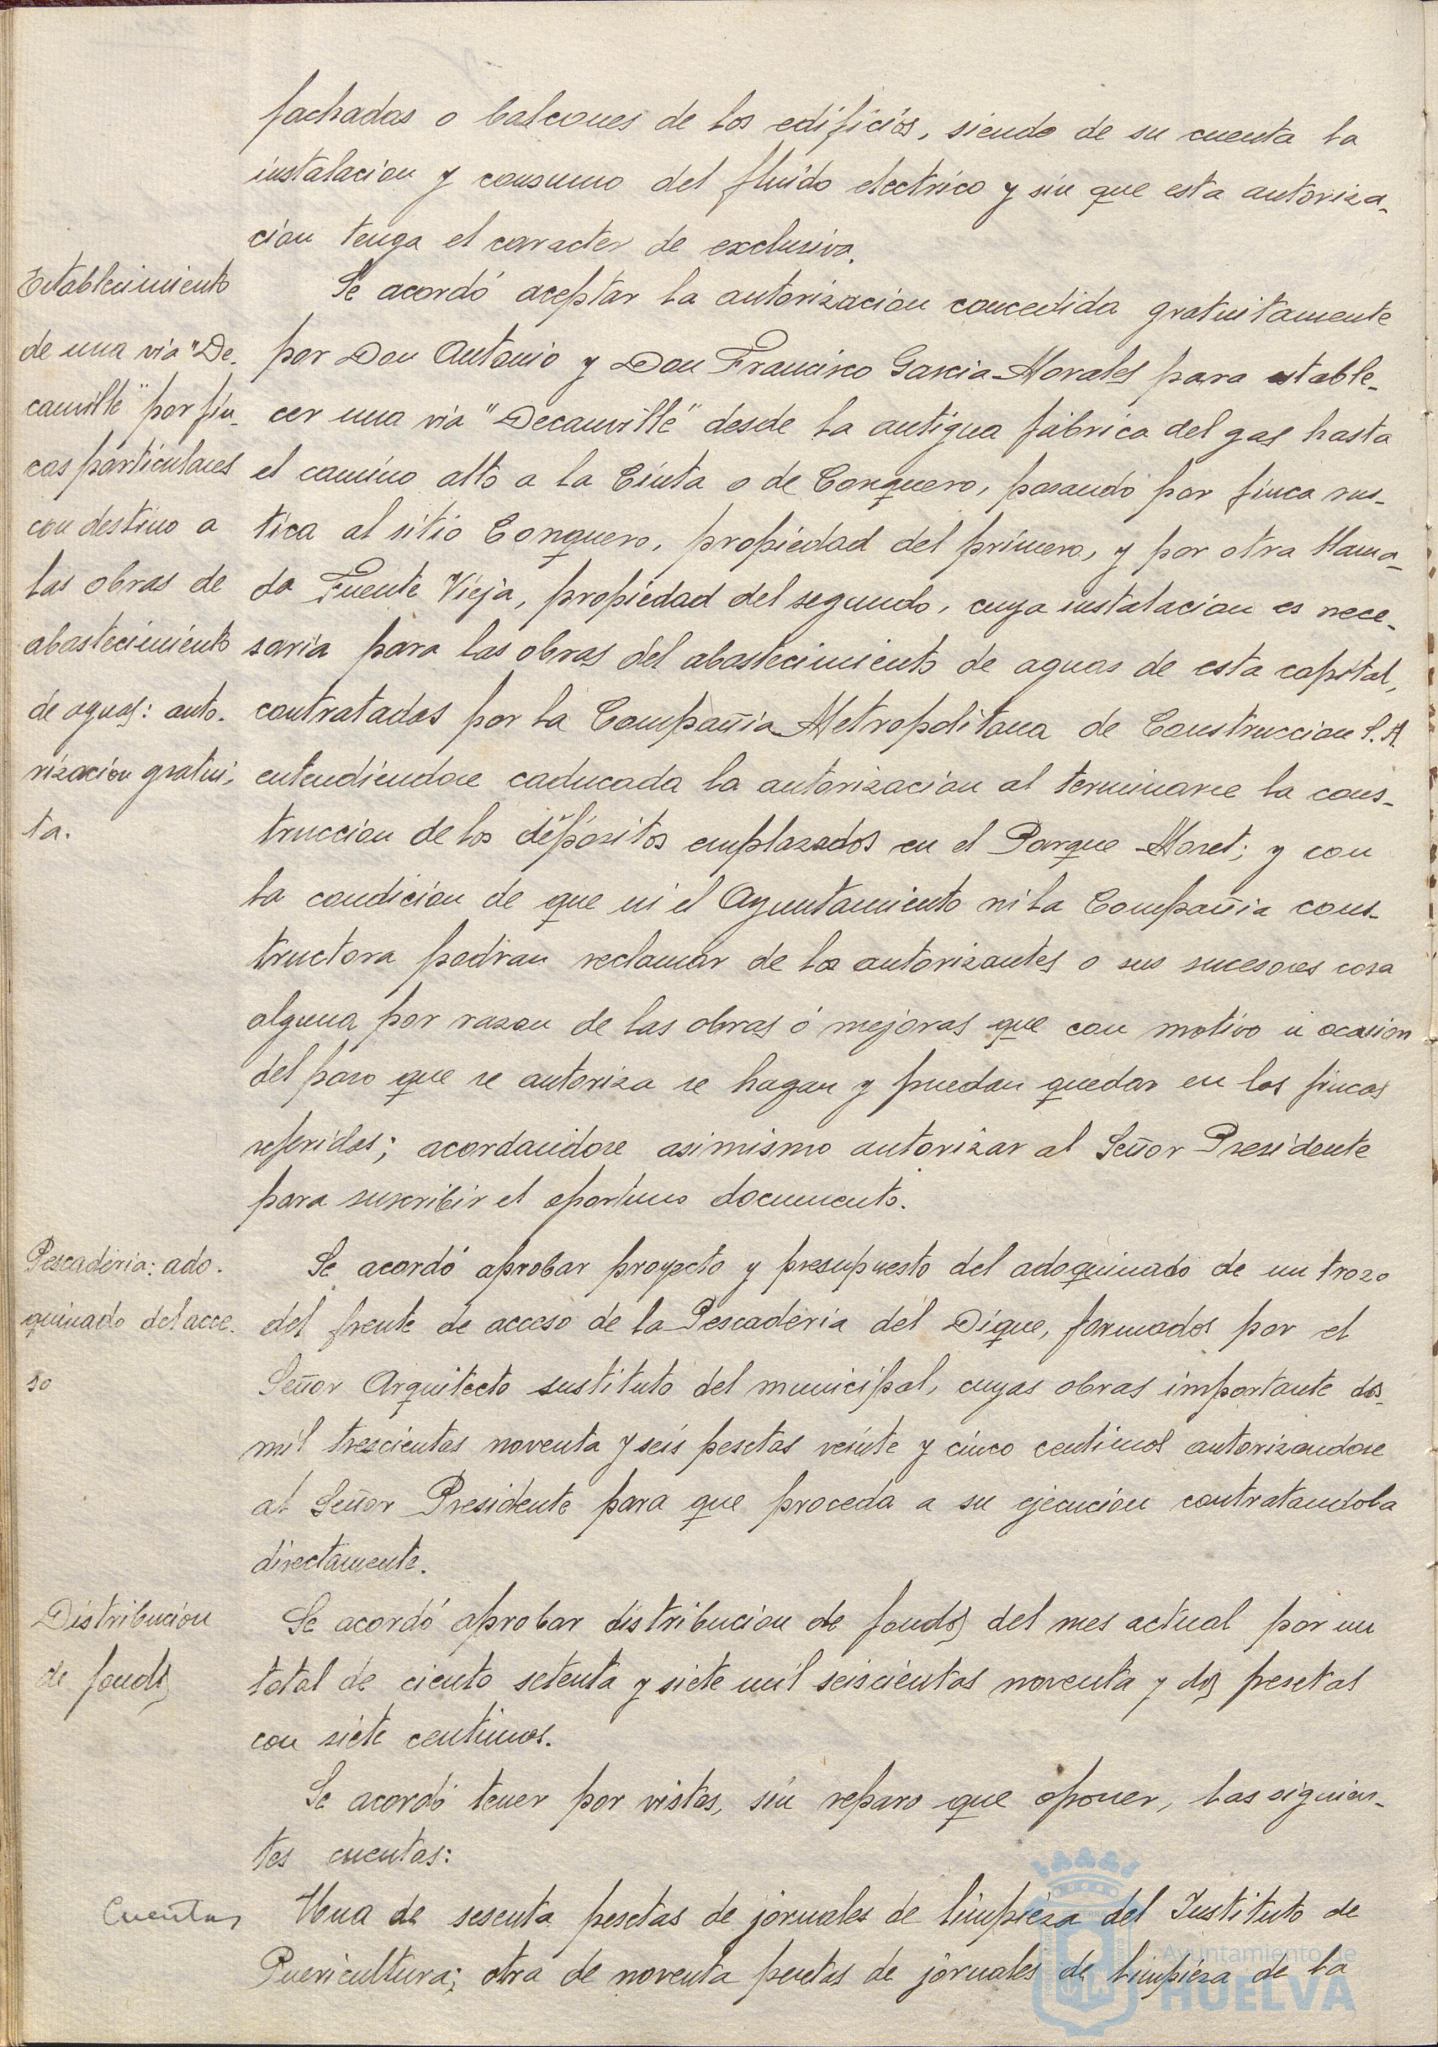 fachadas o balcones de los edificios, siendo de su cuenta la
instalacion y consumo del fluido electrico y sin que esta autoriza-
cion tenga el caracter de exclusiva.
Establecimiento
de una via "De-
cauville" por fin-
cas particulares
con destino a
las obras de
abastecimiento
de aguas: auto-
rizacion gratui-
ta.
Se acordó aceptar la autorizacion concedida gratuitamente
por Don Antonio y Don Francisco Garcia Morales para estable-
cer una via "Decauville" desde la antigua fábrica del gas hasta
el camino alto a la Cinta o de Conquero, pasando por finca rus-
tica al sitio Conquero, propiedad del primero, y por otra llama-
da Fuente Vieja, propiedad del segundo, cuya instalacion es nece-
saria para las obras del abastecimiento de aguas de esta capital,
contratadas por la Compañia Metropolitana de Construccion S.A.
entendiendose caducada la autorizacion al terminarse la cons-
truccion de los depósitos emplazados en el Parque Moret; y con
la condicion de que ni el Ayuntamiento ni la Compañia cons-
tructora podran reclamar de los autorizantes o sus sucesores cosa
alguna por razon de las obras ó mejoras que con motivo u ocasion
del paso que se autoriza se hagan y puedan quedar en las fincas
referidas; acordandose asimismo autorizar al Señor Presidente
para suscribir el oportuno documento.
Pescaderia: ado-
quinado del acce-
so
Se acordó aprobar proyecto y presupuesto del adoquinado de un trozo
del frente de acceso de la Pescaderia del Dique, formados por el
Señor Arquitecto sustituto del municipal, cuyas obras importante dos
mil trescientas noventa y seis pesetas veinte y cinco centimos autorizandose
al Señor Presidente para que proceda a su ejecucion contratandola
directamente.
Distribucion
de fondos
Se acordó aprobar distribucion de fondos del mes actual por un
total de ciento setenta y siete mil seiscientas noventa y dos pesetas
con siete centimos.
Se acordó tener por vistas, sin reparo que oponer, las siguien-
tes cuentas:
Cuentas
Una de sesenta pesetas de jornales de limpieza del Instituto de
Puericultura; otra de noventa pesetas de jornales de limpieza de la
Ayuntamiento de
HUELVA